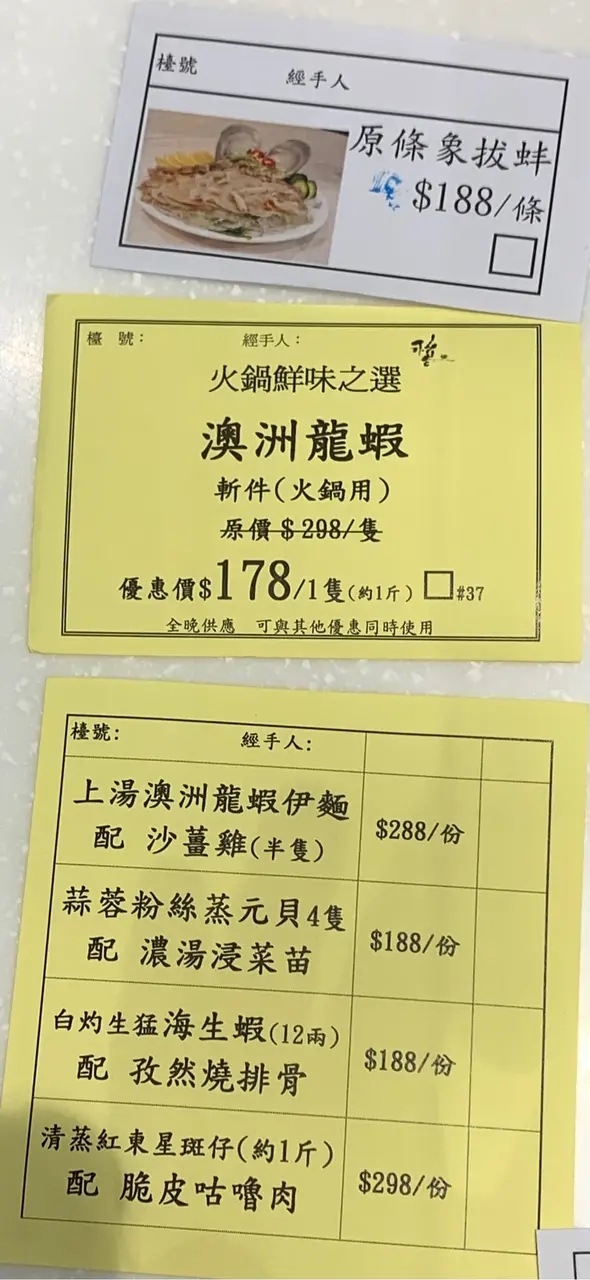 檯號 經手人
原條象拔蚌
$188/條
檯 號： 經手人：
火鍋鮮味之選
澳洲龍蝦
斬件(火鍋用)
原價 $298/隻
優惠價$178/1隻(約1斤) #37
全晚供應 可與其他優惠同時使用
檯號: 經手人:
上湯澳洲龍蝦伊麵
配 沙薑雞(半隻)
$288/份
蒜蓉粉絲蒸元貝4隻
配 濃湯浸菜苗
$188/份
白灼生猛海生蝦(12兩)
配 孜然燒排骨
$188/份
清蒸紅東星斑仔(約1斤)
配 脆皮咕嚕肉
$298/份